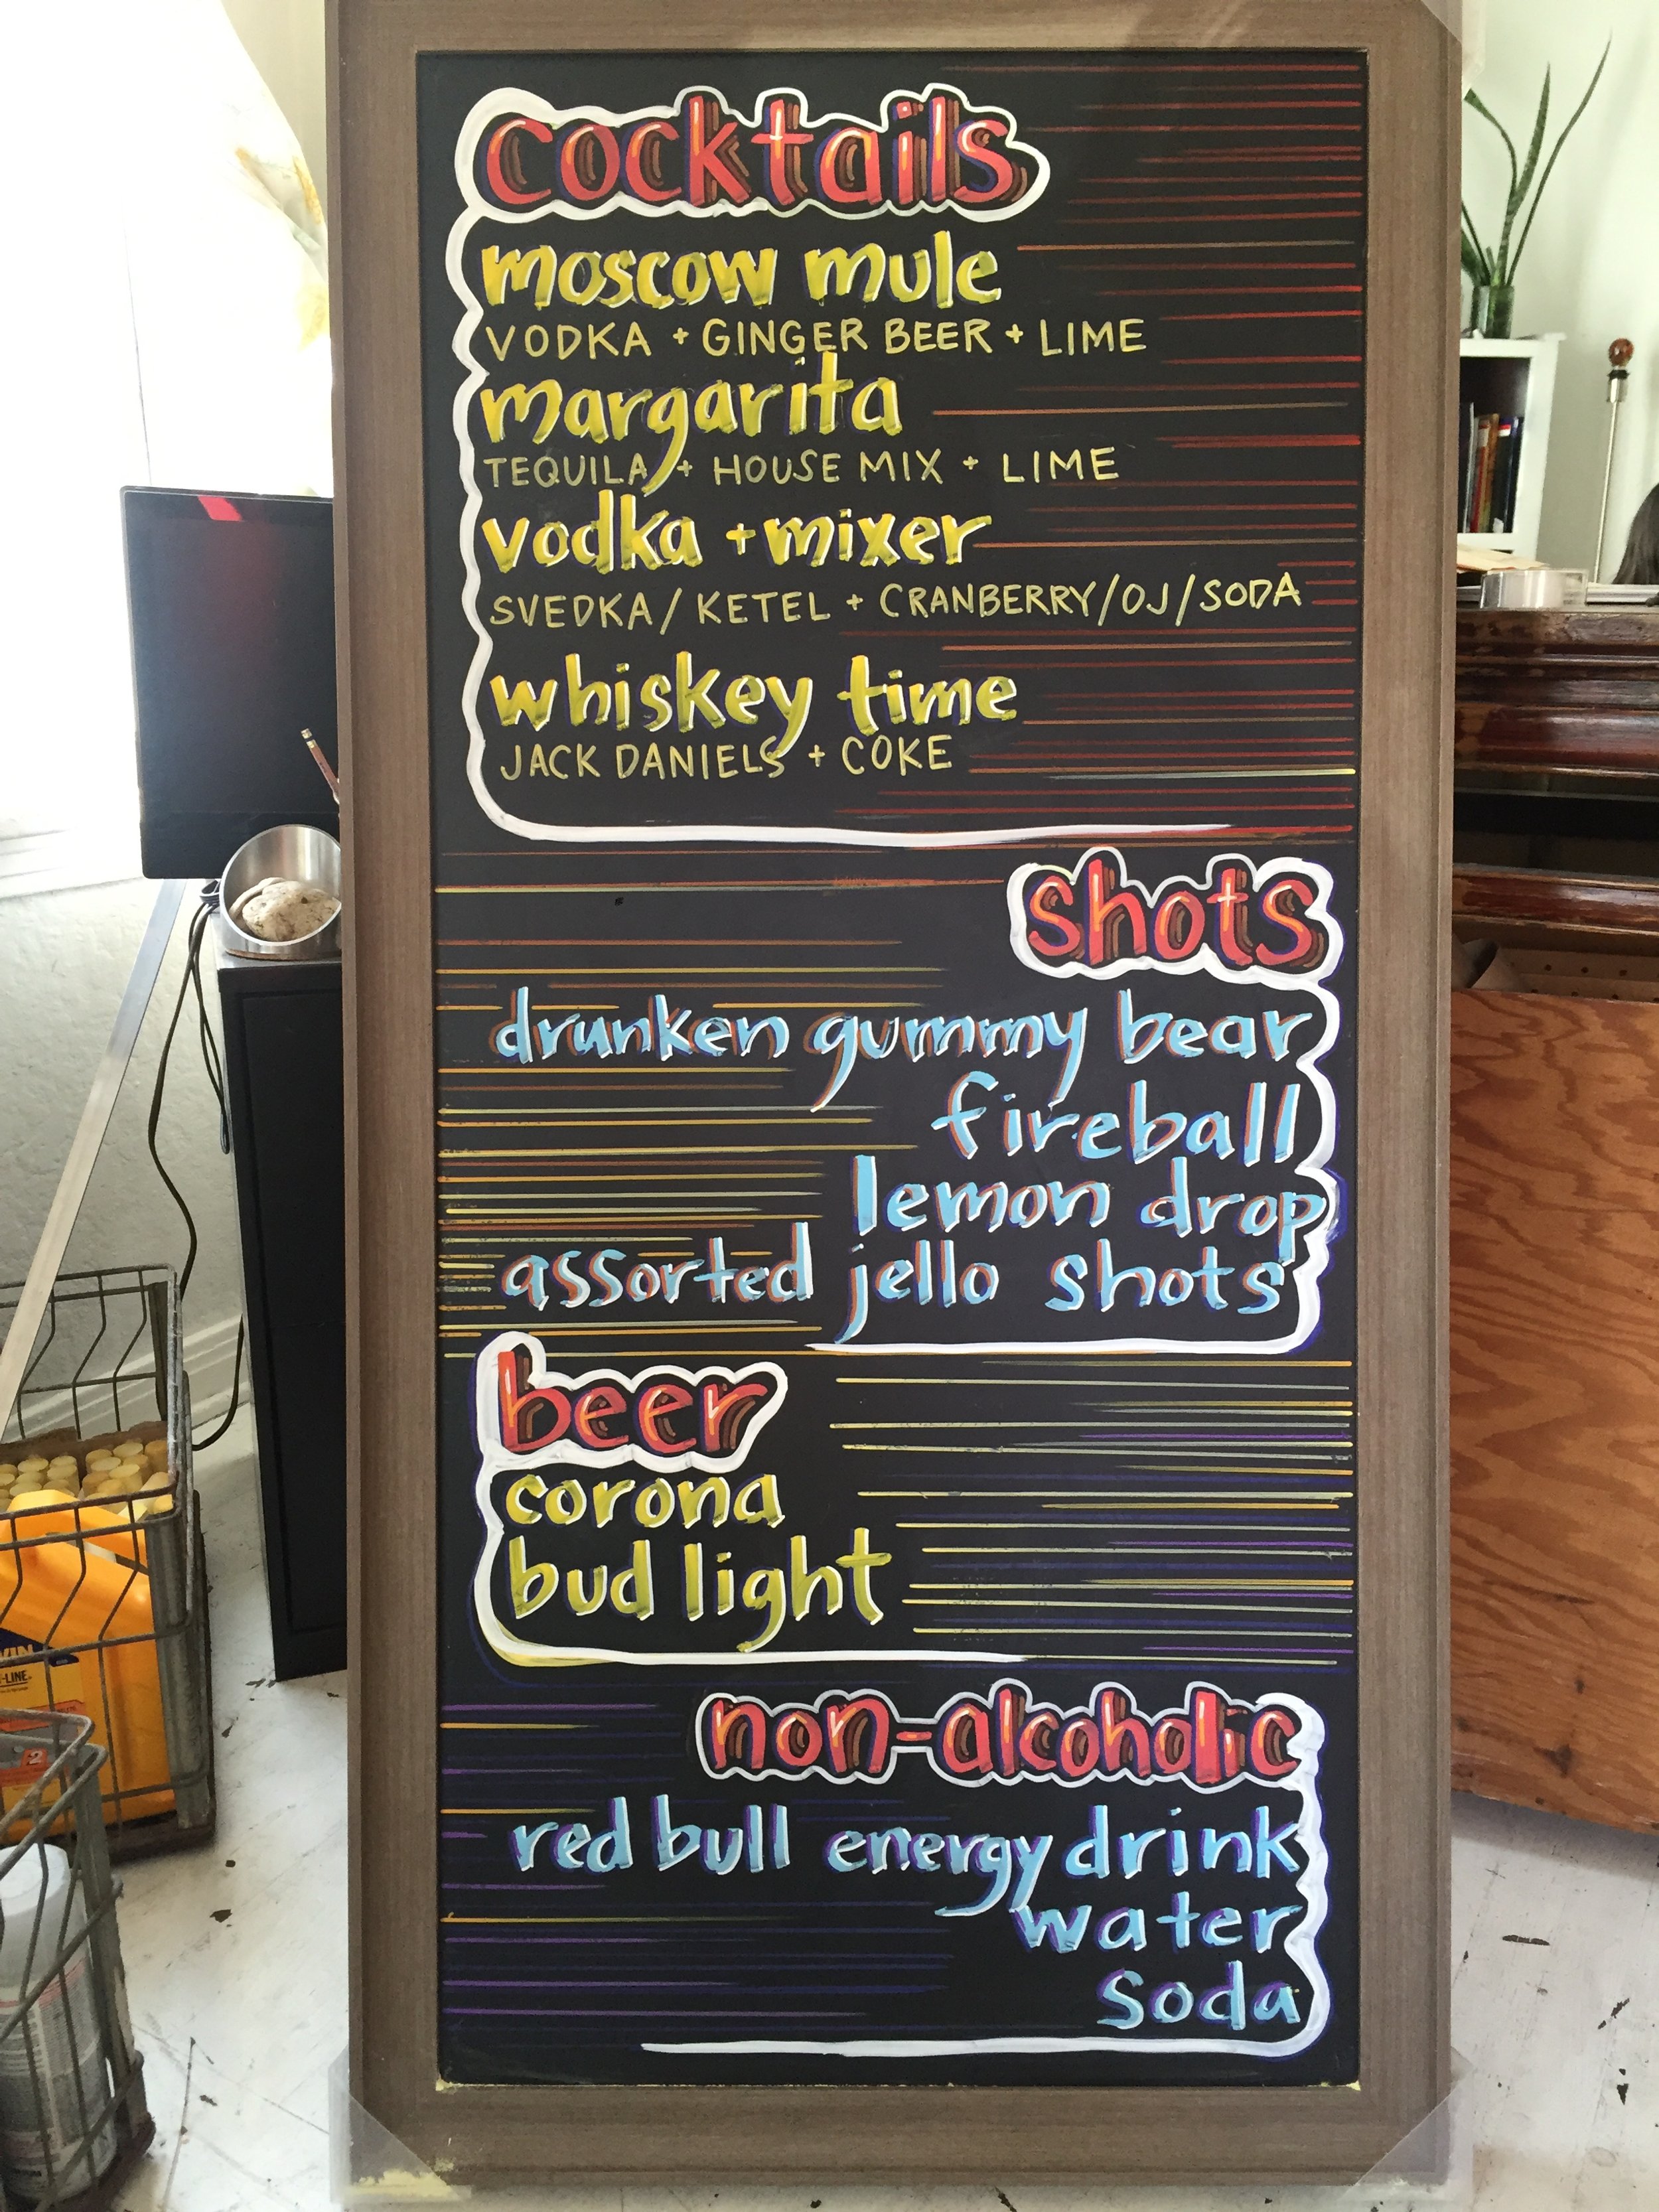 cocktails
moscow mule
VODKA + GINGER BEER + LIME
margarita
TEQUILA + HOUSE MIX + LIME
vodka + mixer
SVEDKA/KETEL + CRANBERRY/OJ/SODA
whiskey time
JACK DANIELS + COKE
shots
drunken gummy bear
fireball
lemon drop
assorted jello shots
beer
corona
bud light
non-alcoholic
red bull energy drink
water
soda
-LINE
2